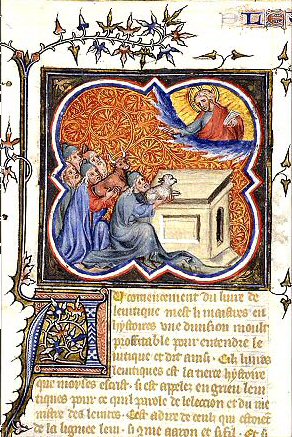 commencement du liure de
leuitique mest li maistres en
hystores vne diuision moult
proffitable pour entendre le
utique et dit ainsi Cils liures
leuitiques est la tierce hystoire
que moyses escrist si est apelez en grieu leui
tiques pour ce quil parole de leleccion et du me
nistre des leuites Cest adire de ceuls qui estoiet
de la lignee leui si 9me aaron et si fil Et si